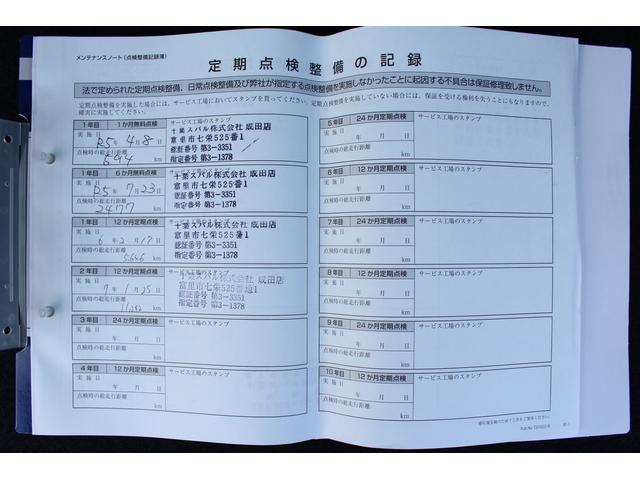 メンテナンスノート(点検整備記録簿)
定期点検整備の記録
法で定められた定期点検整備、日常点検整備及び弊社が指定する点検整備を実施しなかったことに起因する不具合は保証修理致しません。
定期点検整備を実施した場合には、サービス工場においてスタンプを貰ってください。定期点検整備を実施していない場合には、保証を受ける権利を失うことにもなりますので、
確実に実施してください。
1年目 1か月無料点検 サービス工場のスタンプ
実施日 R5年4月8日
点検時の総走行距離
594 km
千葉スバル株式会社 成田店
富里市七栄525番1
認証番号 第3-3351
指定番号 第3-1378
1年目 6か月無料点検 サービス工場のスタンプ
実施日 R5年7月23日
点検時の総走行距離
2477 km
千葉スバル株式会社 成田店
富里市七栄525番1
認証番号 第3-3351
指定番号 第3-1378
1年目 12か月定期点検 サービス工場のスタンプ
実施日 6年2月17日
点検時の総走行距離
5646 km
千葉スバル株式会社 成田店
富里市七栄525番1
認証番号 第3-3351
指定番号 第3-1378
2年目 12か月定期点検 サービス工場のスタンプ
実施日 7年1月25日
点検時の総走行距離
km
千葉スバル株式会社 成田店
富里市七栄525番1
認証番号 第3-3351
指定番号 第3-1378
3年目 24か月定期点検 サービス工場のスタンプ
実施日 年 月 日
点検時の総走行距離
km
4年目 12か月定期点検 サービス工場のスタンプ
実施日 年 月 日
点検時の総走行距離
km
5年目 24か月定期点検 サービス工場のスタンプ
実施日 年 月 日
点検時の総走行距離
km
6年目 12か月定期点検 サービス工場のスタンプ
実施日 年 月 日
点検時の総走行距離
km
7年目 24か月定期点検 サービス工場のスタンプ
実施日 年 月 日
点検時の総走行距離
km
8年目 12か月定期点検 サービス工場のスタンプ
実施日 年 月 日
点検時の総走行距離
km
9年目 24か月定期点検 サービス工場のスタンプ
実施日 年 月 日
点検時の総走行距離
km
10年目 12か月定期点検 サービス工場のスタンプ
実施日 年 月 日
点検時の総走行距離
km